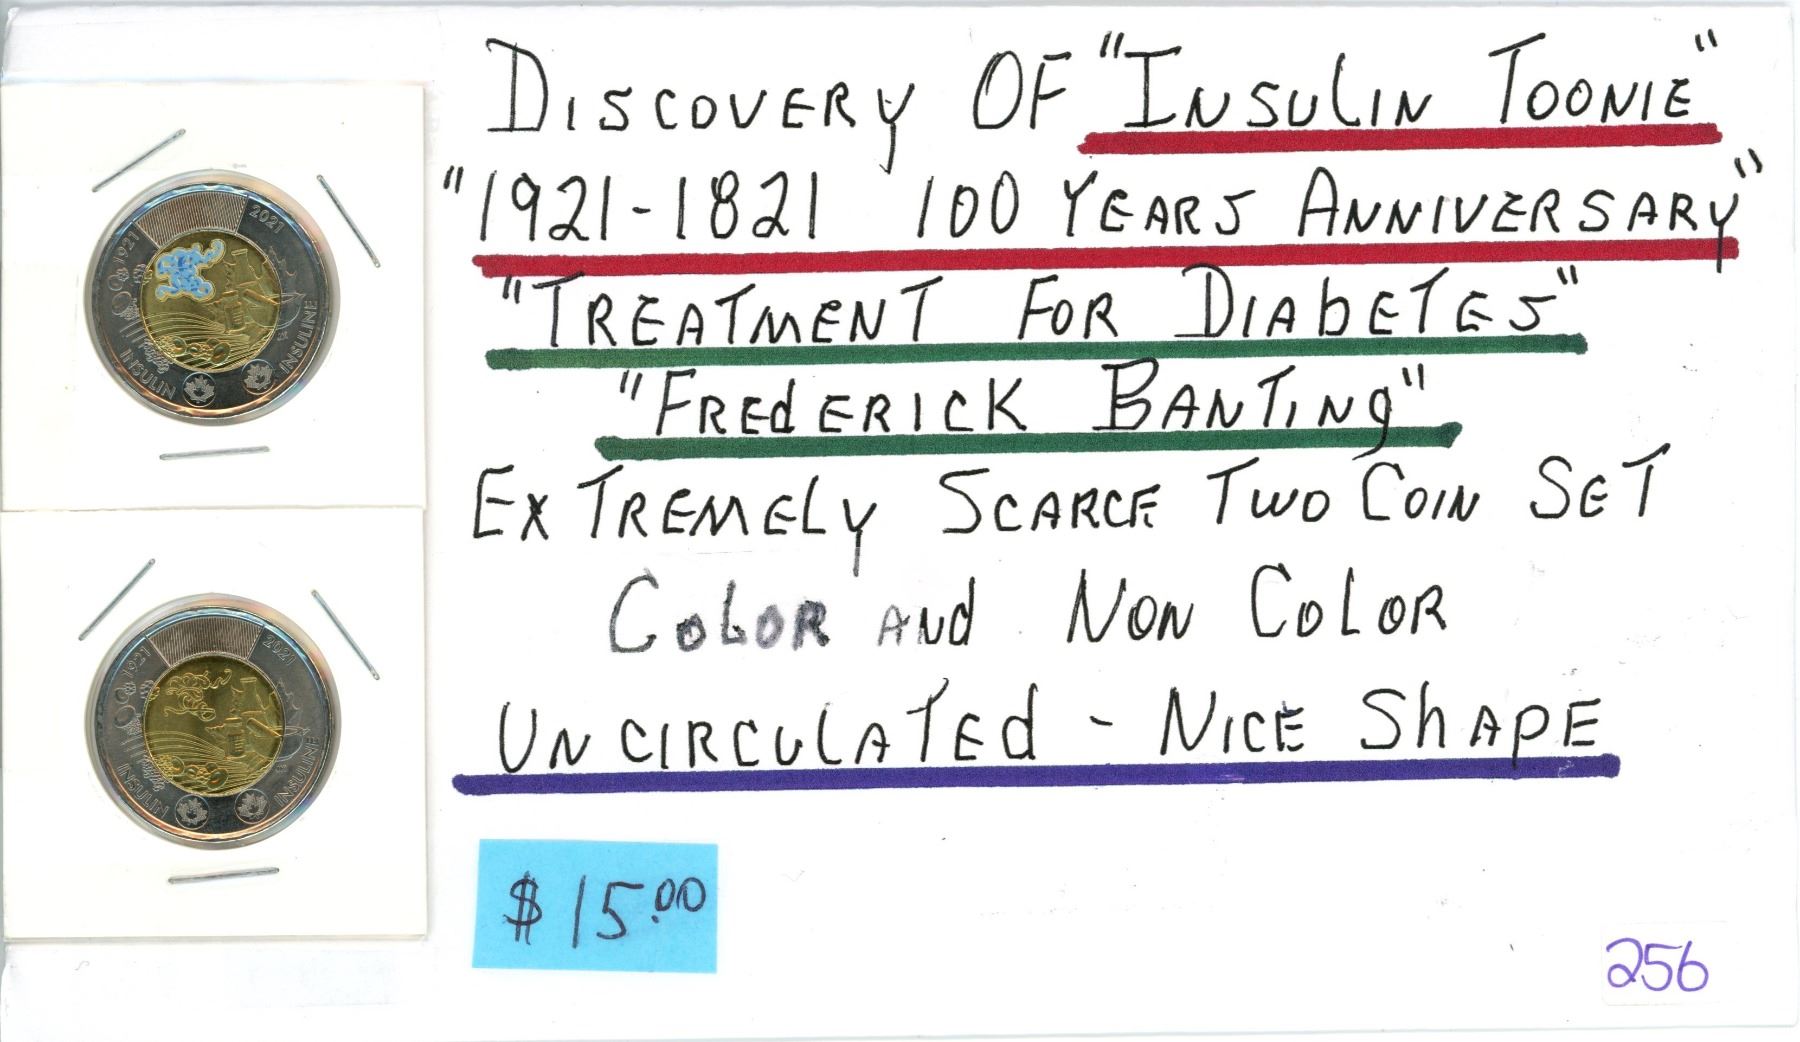 DISCOVERY OF "INSULIN TOONIE"
"1921-1821 100 YEARS ANNIVERSARY"
"TREATMENT FOR DIABETES"
"FREDERICK BANTING"
EXTREMELY SCARCE TWO COIN SET
COLOR AND NON COLOR
UNCIRCULATED - NICE SHAPE
$15.00
256
1921
2021
INSULIN
INSULINE
1921
2021
INSULIN
INSULINE